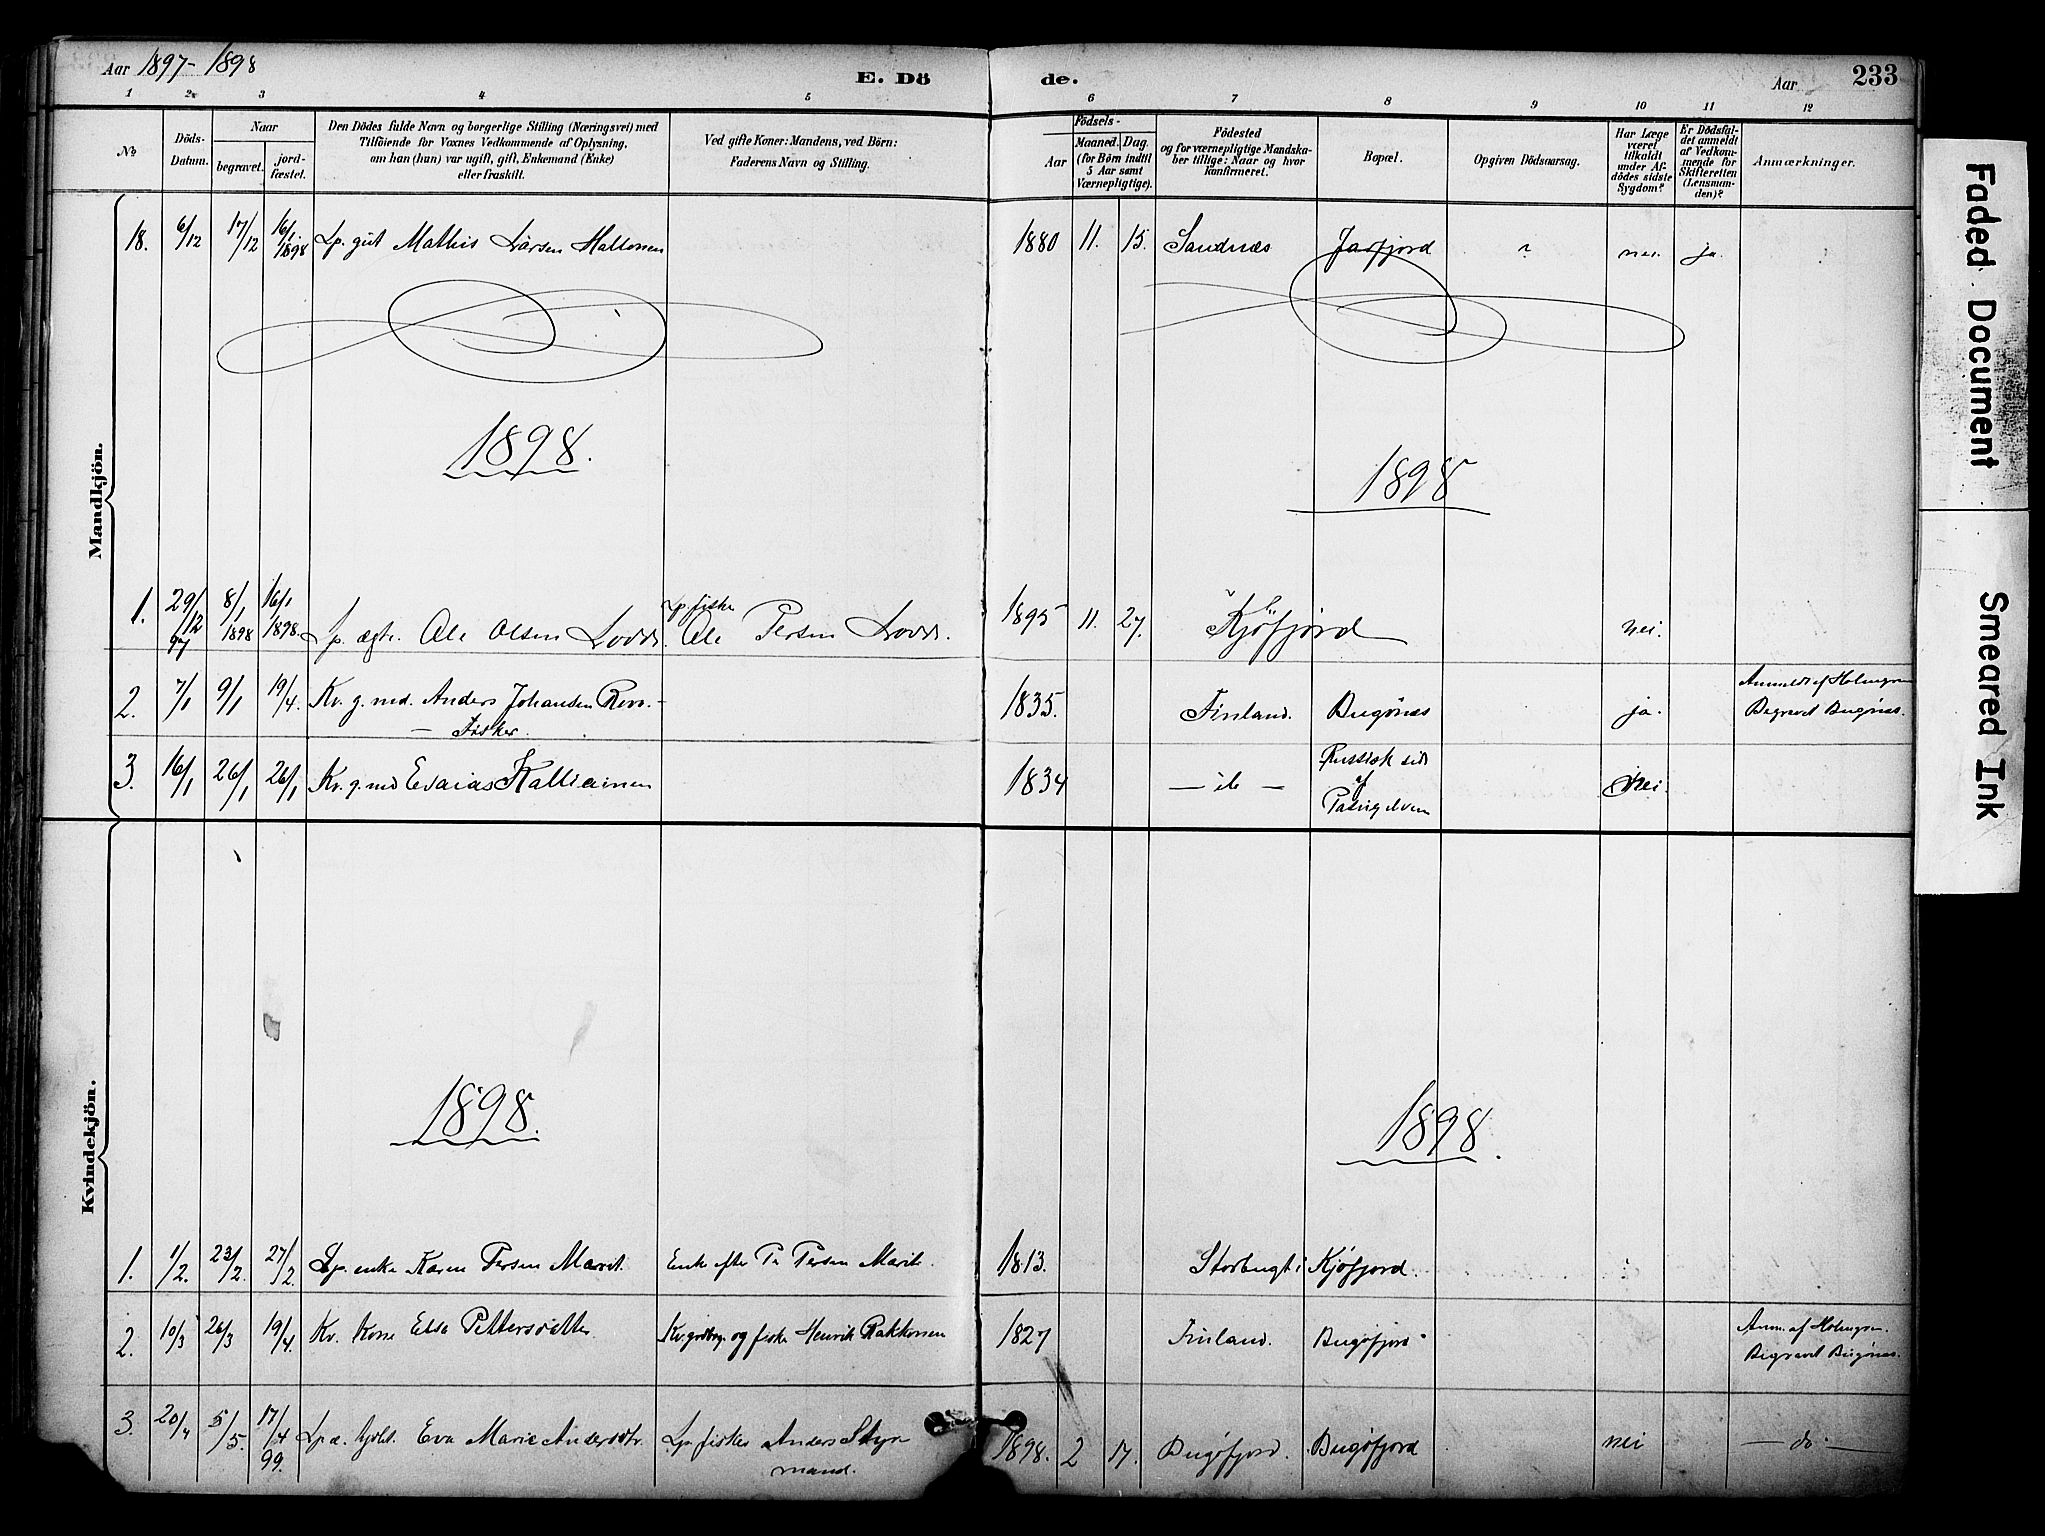 Aar 1897-1898
E. Dö
de.
Aar
233
1 2 3 4 5 6 7 8 9 10 11 12
No
Döds-
Datum.
Naar
begravet.
jord-
fæstet.
Den Dödes fulde Navn og borgerlige Stilling (Næringsvei) med
Tilföiende for Voxnes Vedkommende af Oplysning,
om han (hun) var ugift, gift, Enkemand (Enke)
eller fraskilt.
Ved gifte Koner: Mandens, ved Börn:
Faderens Navn og Stilling.
Födsels-
Aar
Maaned. Dag.
(for Börn indtil
5 Aar samt
Værnepligtige).
Födested
og for værnepligtige Mandska-
ber tillige: Naar og hvor
konfirmeret.
Bopæl.
Opgiven Dödsaarsag.
Har Læge
været
tilkaldt
under Af-
dödes sidste
Sygdom?
Er Dödsfal-
det anmeldt
af Vedkom-
mende for
Skifteretten
(Lensman-
den)?
Anmærkninger.
Mandkjön.
18. 6/12 17/12 16/1 1898 Lp. gut Mathis Larsen Hallonen 1880 11. 15. Sandnæs Jarfjord ? nei. ja.
1898.
1898
1. 29/12 97 8/1 1898 16/1 1898. Lp. ægte. Ole Olsen
Lp. fisker
Ole Persen 1895 11. 27. Kjöfjord nei.
2. 7/1 9/1 19/4. Kv. g. md. Anders Johansen
— Fisker.
1835. Finland. Bugönes ja.
Anmeldt af Holmgren
Begravet Bugönes.
3. 16/1 26/1 26/1 Kv. g. md Esaias Kalliainen 1834 — —
Russisk side
af
Pasvigelven
nei.
Kvindekjön.
1898.
1898.
1. 1/2. 23/2. 27/2. Lp. enke Karen Persen Marit. Enke efter Per Persen Marit. 1813. Storbugt i Kjöfjord.
2. 10/3 26/3 19/4. Kv. Kone Else Pettersdatter Kv. grdbr. og fisker Henrik Rakkonen 1827 Finland. Bugöfjord
Anm. af Holmgren.
Begravet Bugönes.
3. 20/4 5/5. 17/4 99. Lp. æ. Eva Marie Andersdtr. Lp. fisker Anders Styr
mand.
1898. 2 17. Bugöfjord. Bugöfjord nei — do —
Faded Document
Smeared Ink